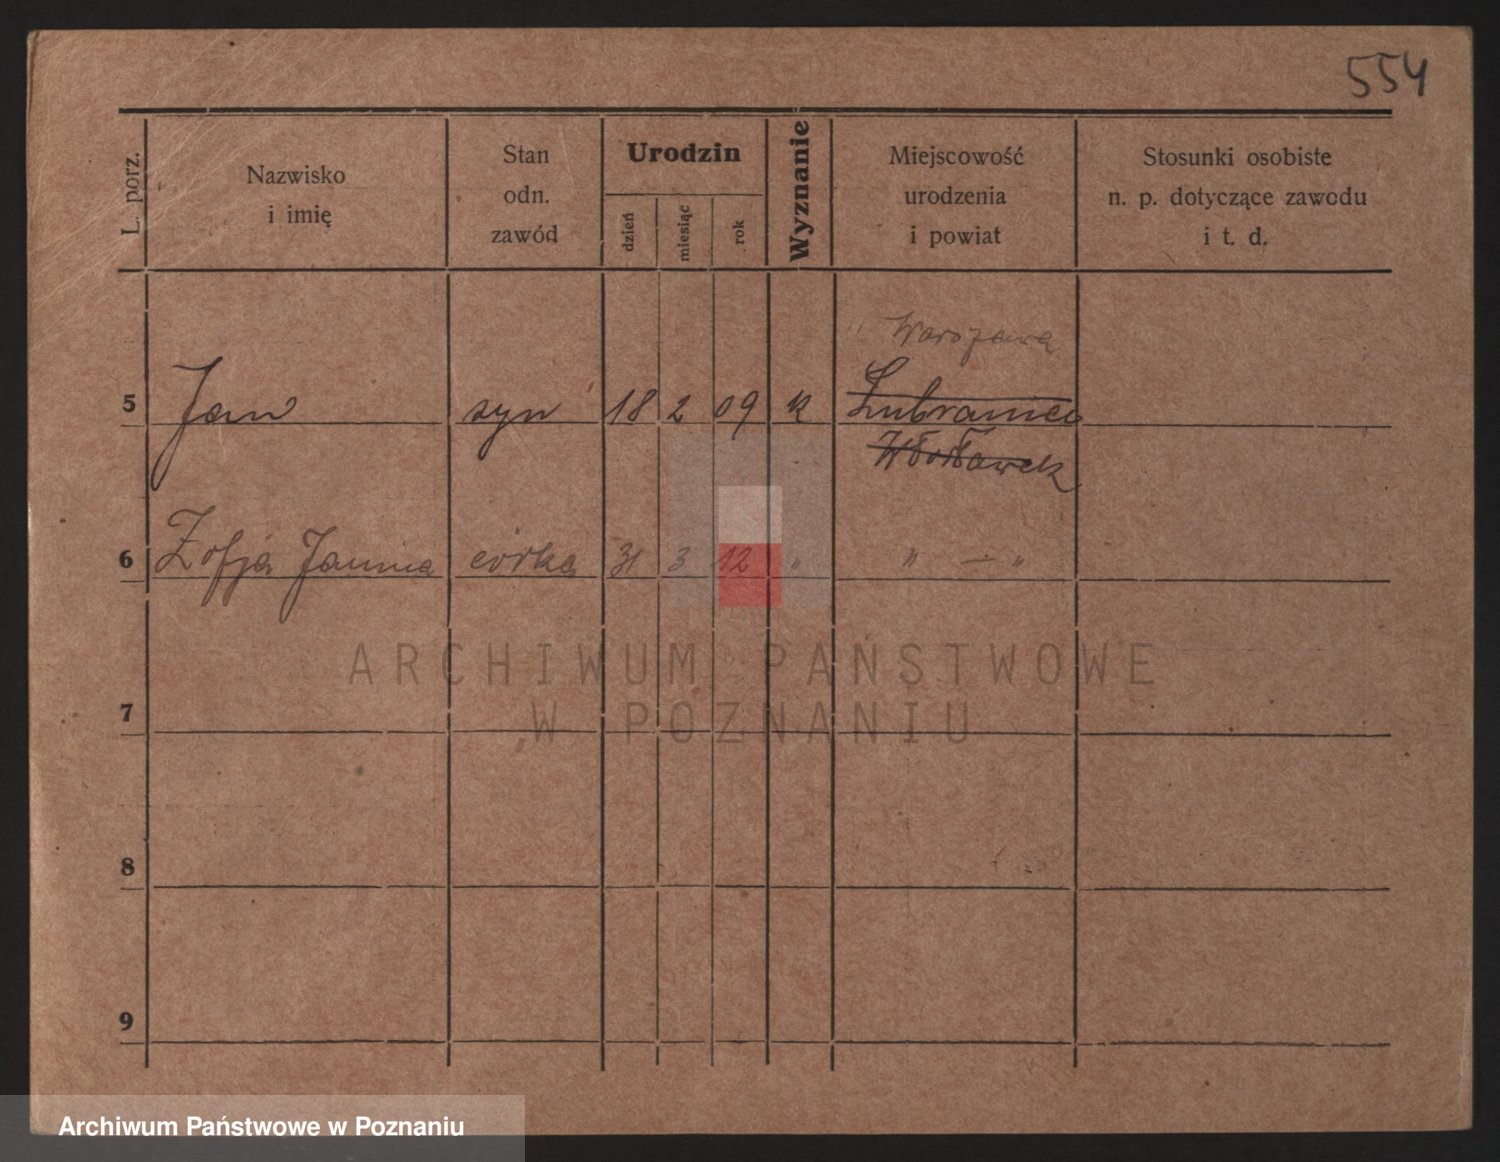 554
L. porz.
Nazwisko
i imię
Stan
odn.
zawód
Urodzin
dzień
miesiąc
rok
Wyznanie
Miejscowość
urodzenia
i powiat
Stosunki osobiste
n. p. dotyczące zawodu
i t. d.
Warszawa
5 Jan syn 18 2 09 k Lubraniec
Włocławek
6 Zofja Janina córka 31 3 12 " " — "
ARCHIWUM PAŃSTWOWE
W POZNANIU
7
8
9
Archiwum Państwowe w Poznaniu